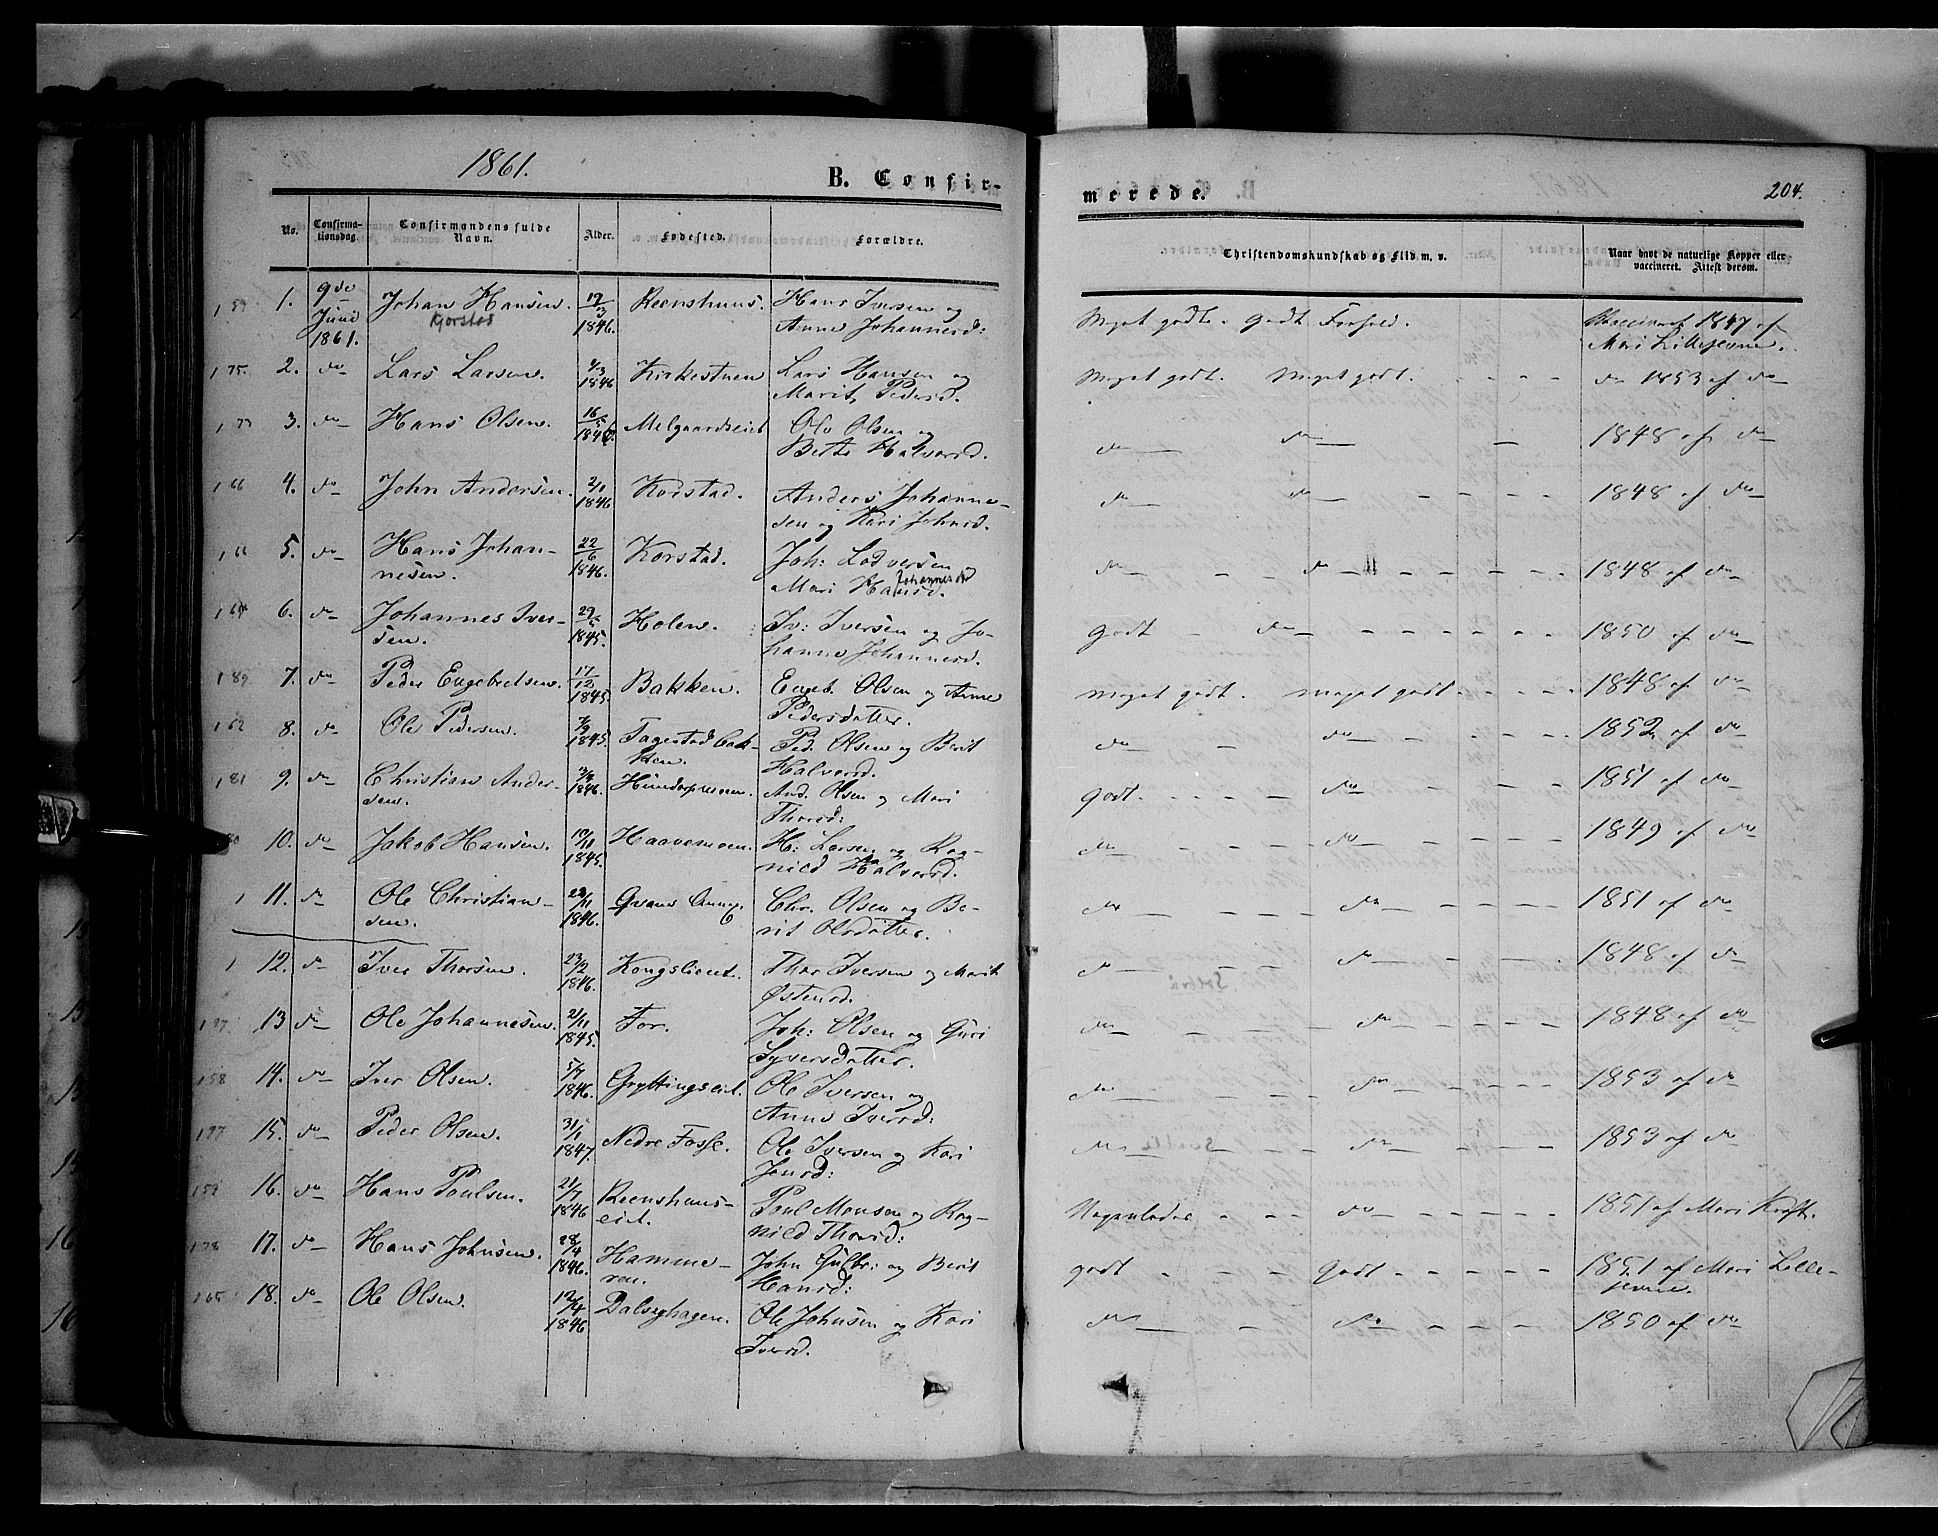 1861.
B. Confir-
merede.
204.
No.
Confirma-
tionsdag.
Confirmandens fulde
Navn.
Alder.
Fødested.
Forældre.
Christendomskundskab og Flid m. v.
Naar havt de naturlige Kopper eller
vaccineret. Attest derom.
1. 9de Juni 1861. Johan Hansen. 1846. Reenshuus. Hans Iversen og
Kjorstad
Anne Johannesd:
Meget godt. godt Forhold. Vaccineret 1847 af
Mari Lillejevne.
175. 2. do Lars Larsen. 1846 Kirkestuen Lars Hansen og
Marit Pedersd.
Meget godt. Meget godt. do 1853 af do
3. do Hans Olsen. 16/5 Melgaardseiet Ole Olsen og
Halvorsd.
do do 1848 af do
166 4. do John Andersen. 2/1 1846 Korstad. Anders Johanne-
sen og Kari Johnsd.
do do 1848 af do
166 5. do Hans Johan-
nesen. 22/6 1846. Korstad. Joh: Lodversen og
Mari Hansd. Johannesd
do do 1848 af do
164 6. do Johannes Iver-
sen. 1845. Holen. Iv: Iversen og Jo-
hanne Johannesd.
godt do 1850 af do
189 7. do Peder Engebretsen. 17/12 1845. Bakken. Engeb. Olsen og Anne
Pedersdatter.
meget godt. meget godt. 1848 af do
162 8. do Ole Pedersen. 1845. Fagestadbak-
ken. Ped. Olsen og Berit
Halvorsd.
do do 1852 af do
181 9. do Christian Ander-
sen. 1846. And. Olsen og Mari
Thorsd:
godt. do 1851 af do
10. do Jakob Hansen. 1845. Haavemoen. H: Larsen og Rag-
nild Halvorsd.
do do 1849 af do
11. do Ole Christian-
sen. 1846. Chr. Olsen og Be-
rit Olsdatter.
do do 1851 af do
12. do Iver Thorsen. 23/2 1846. Kongslieiet. Thor Iversen og Marit
Østensd.
do do 1848 af do
13 do Ole Johannesen. 21/11 1845. For. Joh: Olsen og Guri
Syversdatter.
do do 1848 af do
158 14. do Iver Olsen. 5/7 1846. Gryttingseiet. Ole Iversen og
Anne Iversd:
do do 1853 af do
197 15. do Peder Olsen. 31/1 1847. Nedre Fosse. Ole Iversen og Kari
Jonsd:
do do 1853 af do
159 16. do Hans Poulsen. 21/7 1846 Reenshuus-
eiet. Poul Monsen og Rag-
nild Thorsd:
Nogenledes do 1851 af Mari Kroft.
178 17. do Hans Johnsen. 28/4 1846. Hamme-
ren. John Gulbr: og Berit
Hansd:
godt Godt 1851 af Mari Lille-
jevne.
165 18. do Ole Olsen. 12/4 1846 Dalseghagen. Ole Johnsen og Kari
Iversd.
do do 1850 af do